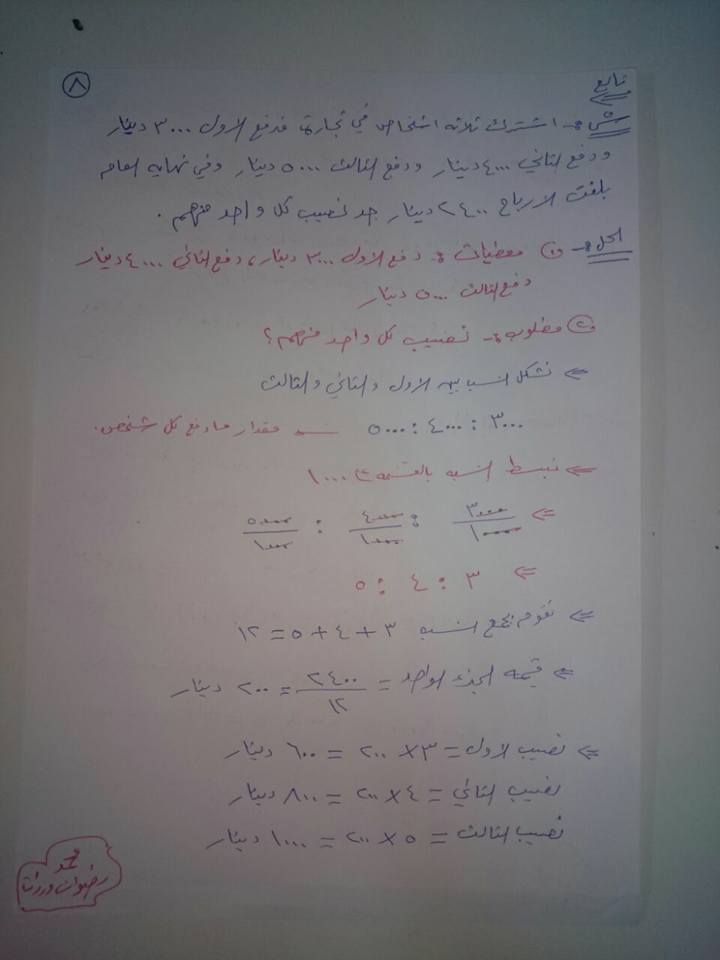 ٨
تابع
س:- اشترك ثلاثه اشخاص في تجارة فدفع الاول ٣٠٠٠ دينار
ودفع الثاني ٤٠٠٠ دينار ودفع الثالث ٥٠٠٠ دينار وفي نهايه العام
بلغت الارباح ٢٤٠٠ دينار جد نصيب كل واحد منهم .
الحل:- ① معطيات :- دفع الاول ٣٠٠٠ دينار، دفع الثاني ٤٠٠٠ دينار
دفع الثالث ٥٠٠٠ دينار
② مطلوب:- نصيب كل واحد منهم؟
⇐ نشكل النسب بين الاول والثاني والثالث
٣٠٠٠ : ٤٠٠٠ : ٥٠٠٠ مقدار ما دفع كل شخص.
⇐ نبسط النسب بالقسمه ÷ ١٠٠٠
⇐ ٣٠٠٠/١٠٠٠ : ٤٠٠٠/١٠٠٠ : ٥٠٠٠/١٠٠٠
⇐ ٣ : ٤ : ٥
⇐ نقوم بجمع النسب ٣ + ٤ + ٥ = ١٢
⇐ قيمه الجزء الواحد = ٢٤٠٠/١٢ = ٢٠٠ دينار
⇐ نصيب الاول = ٣ × ٢٠٠ = ٦٠٠ دينار
نصيب الثاني = ٤ × ٢٠٠ = ٨٠٠ دينار
نصيب الثالث = ٥ × ٢٠٠ = ١٠٠٠ دينار
محمد
رضوان